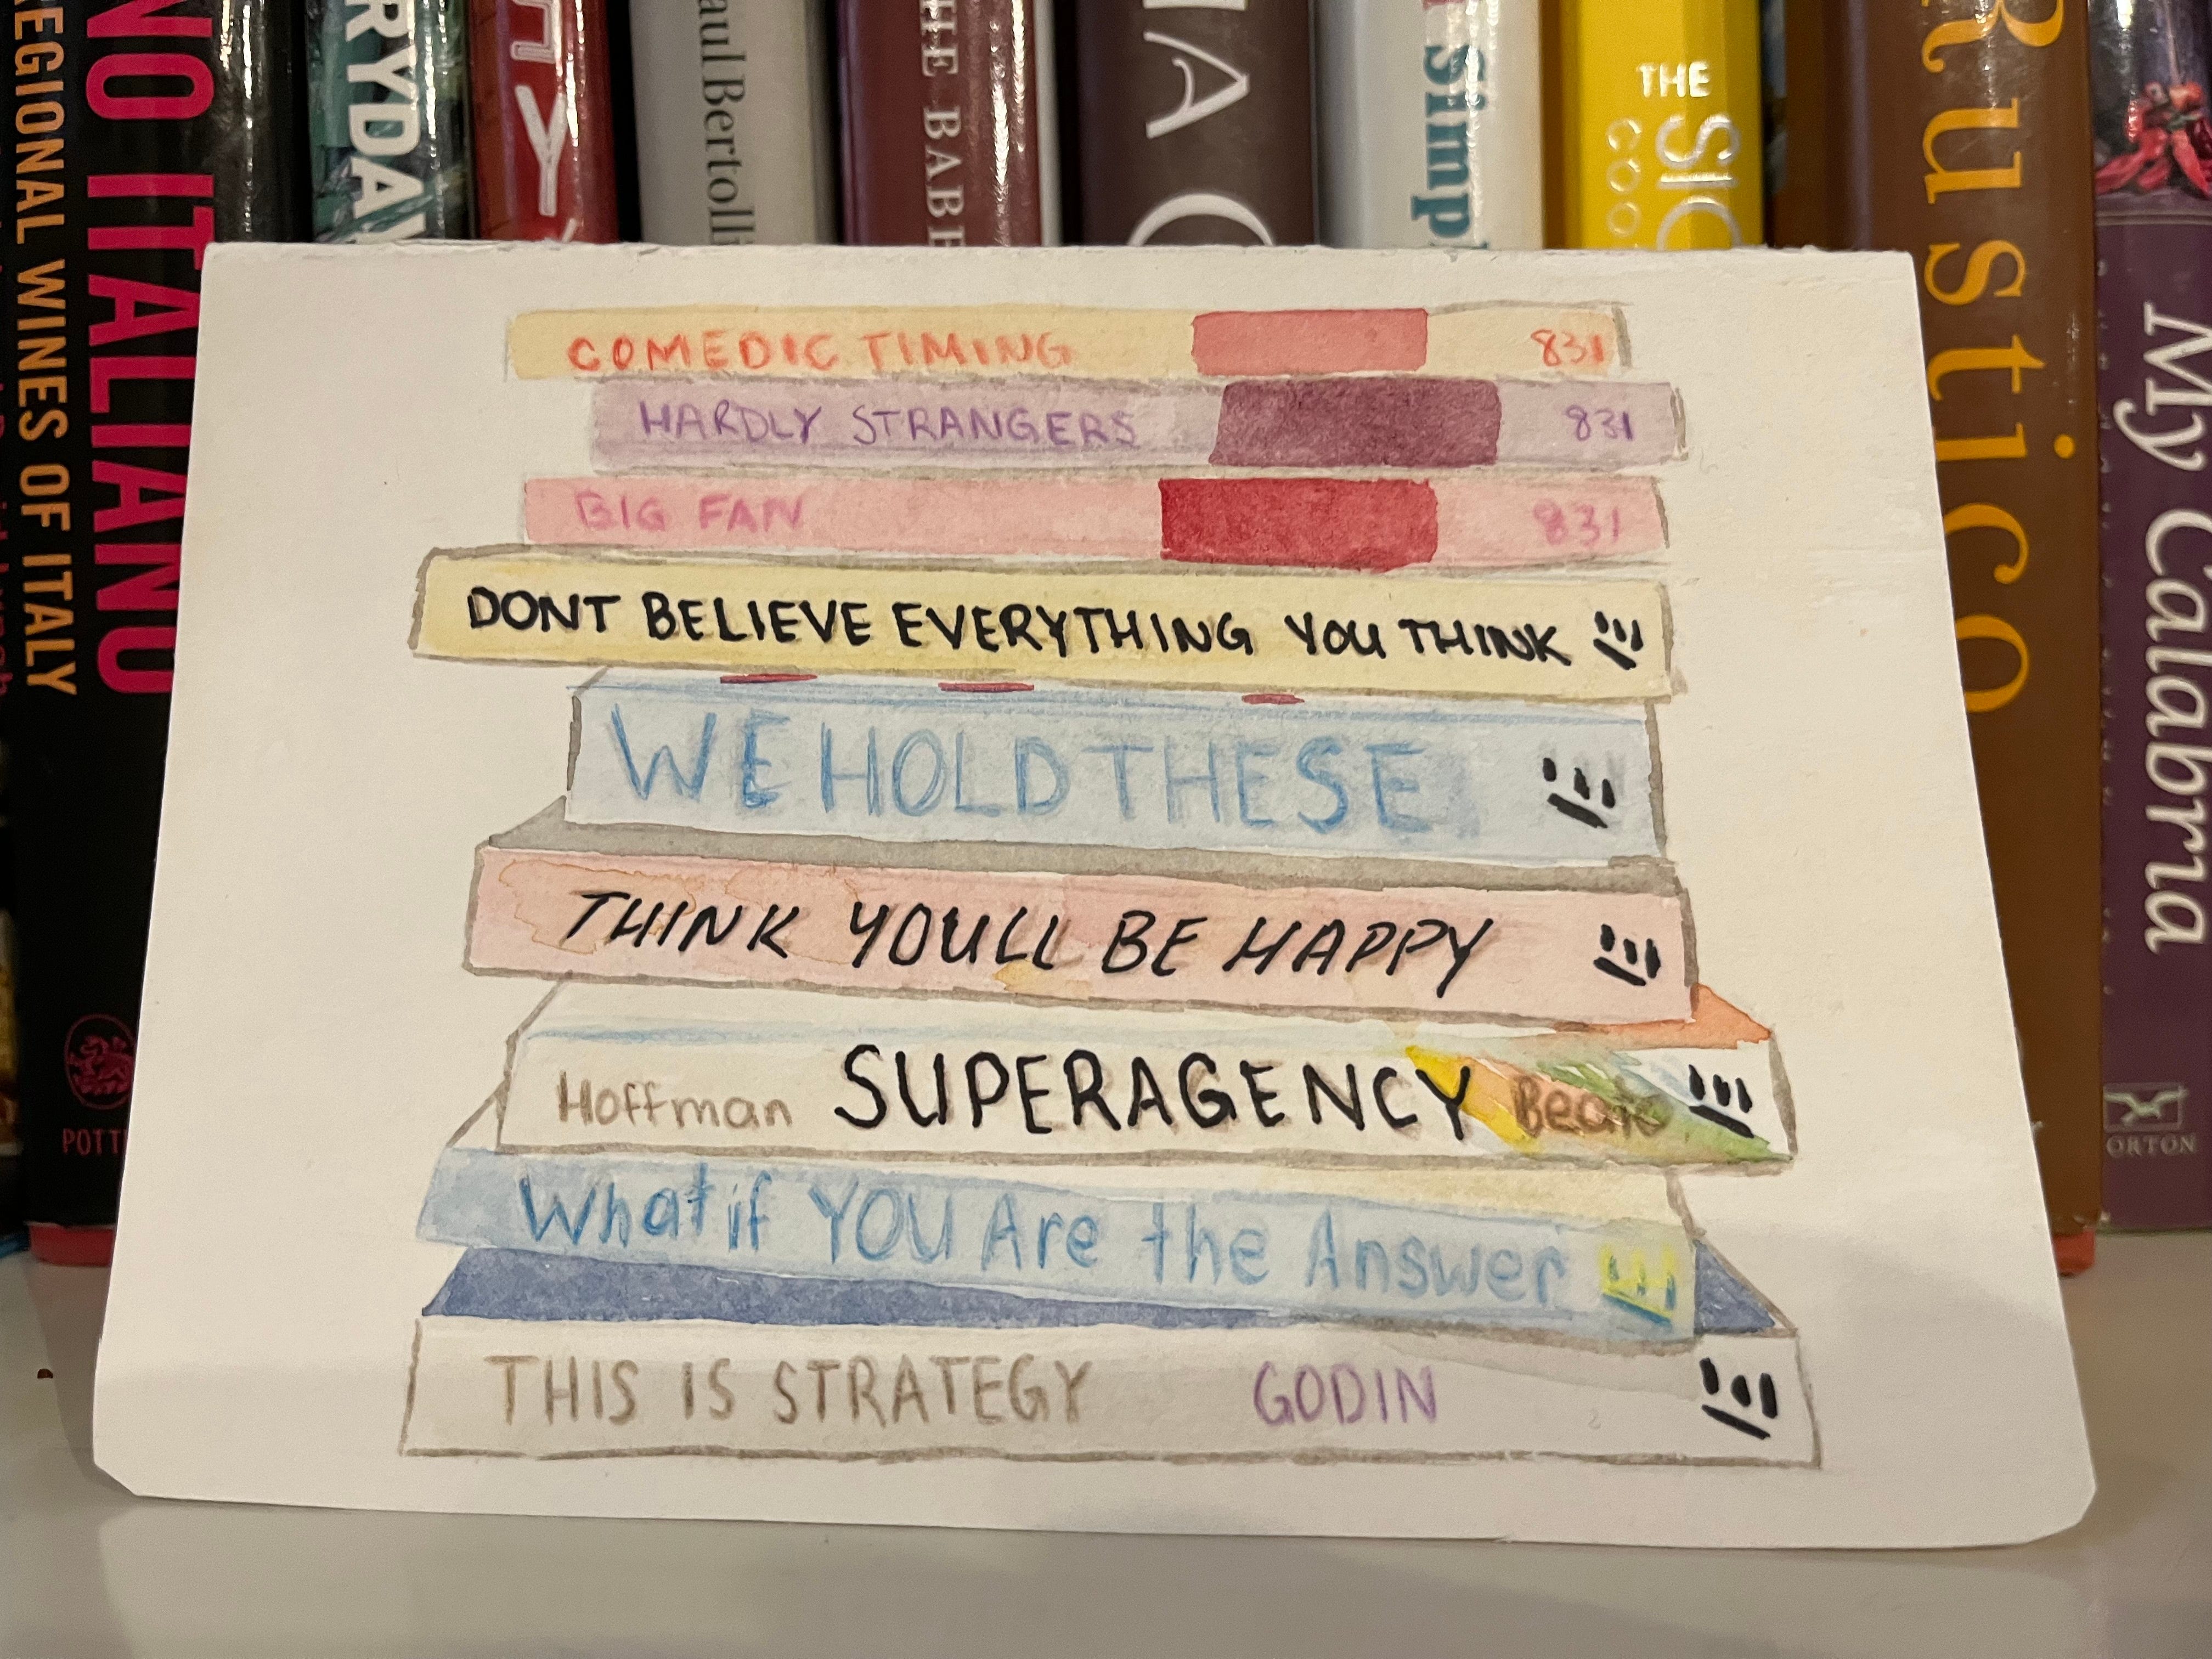 NO ITALIANO
REGIONAL WINES OF ITALY
RYDAY
Paul Bertolli
THE BABB
Simpl
THE
Rustico
My Calabria
COMEDIC TIMING 831
HARDLY STRANGERS 831
BIG FAN 831
DONT BELIEVE EVERYTHING YOU THINK
WE HOLD THESE
THINK YOULL BE HAPPY
Hoffman SUPERAGENCY
What if YOU Are the Answer
THIS IS STRATEGY GODIN
POTT
ORTON